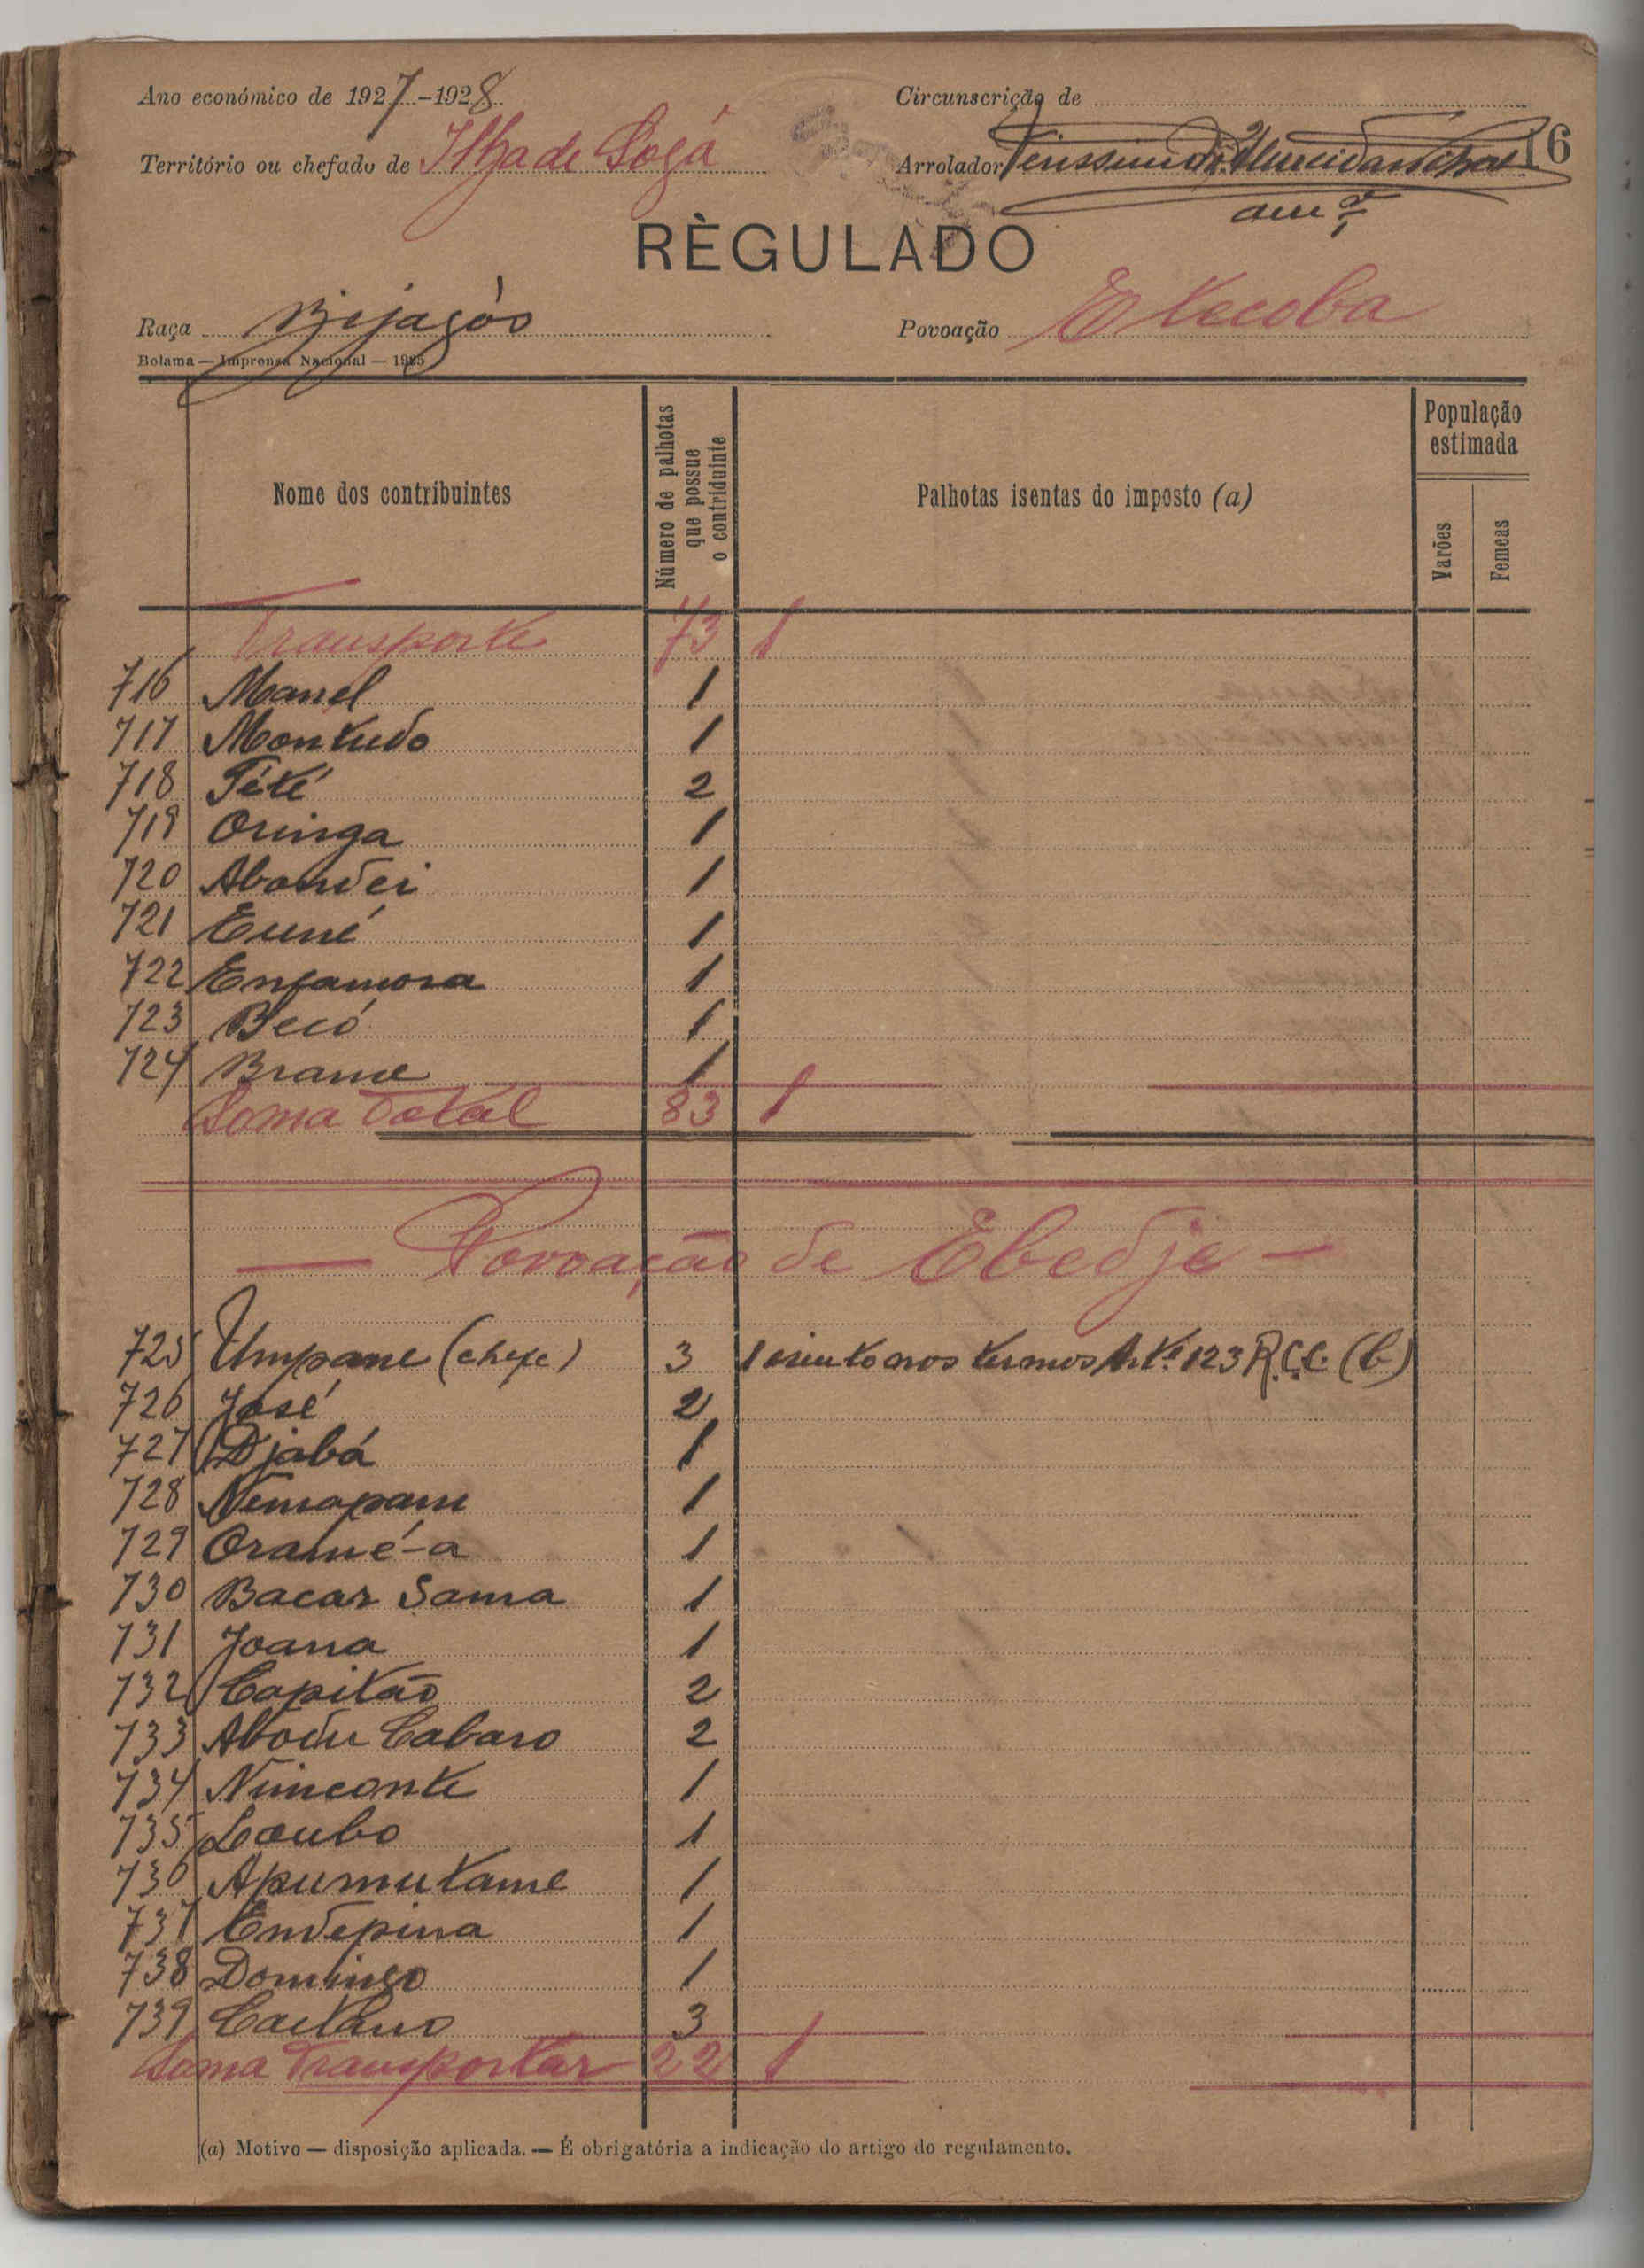 Ano económico de 1927-1928
Circunscrição de
16
Território ou chefado de Ilha de Sogá
Arrolador
RÈGULADO
Raça Bijagós
Povoação Etecoba
Bolama — Imprensa Nacional — 1925
Nome dos contribuintes
Número de palhotas que possue o contriduinte
Palhotas isentas do imposto (a)
População estimada
Varões
Femeas
Transporte 73 1
716 Manel 1
717 Montudo 1
718 Tété 2
719 Oringa 1
720 Abondei 1
721 Euné 1
722 Engamora 1
723 Becó 1
724 Brame 1
Soma Total 83 1
— Povoação de Ebedje —
725 Umpane (chefe) 3 1 isento nos termos Art.º 123 R.C.C. (b)
726 José 2
727 Djabá 1
728 Nemapam 1
729 Oramé-a 1
730 Bacar Sama 1
731 Joana 1
732 Capitão 2
733 Abodu Cabaro 2
734 Nimconte 1
735 Loubo 1
736 Apumutame 1
737 Endepina 1
738 Domingo 1
739 Caetano 3
Soma Transportar 22 1
(a) Motivo — disposição aplicada. — É obrigatória a indicação do artigo do regulamento.